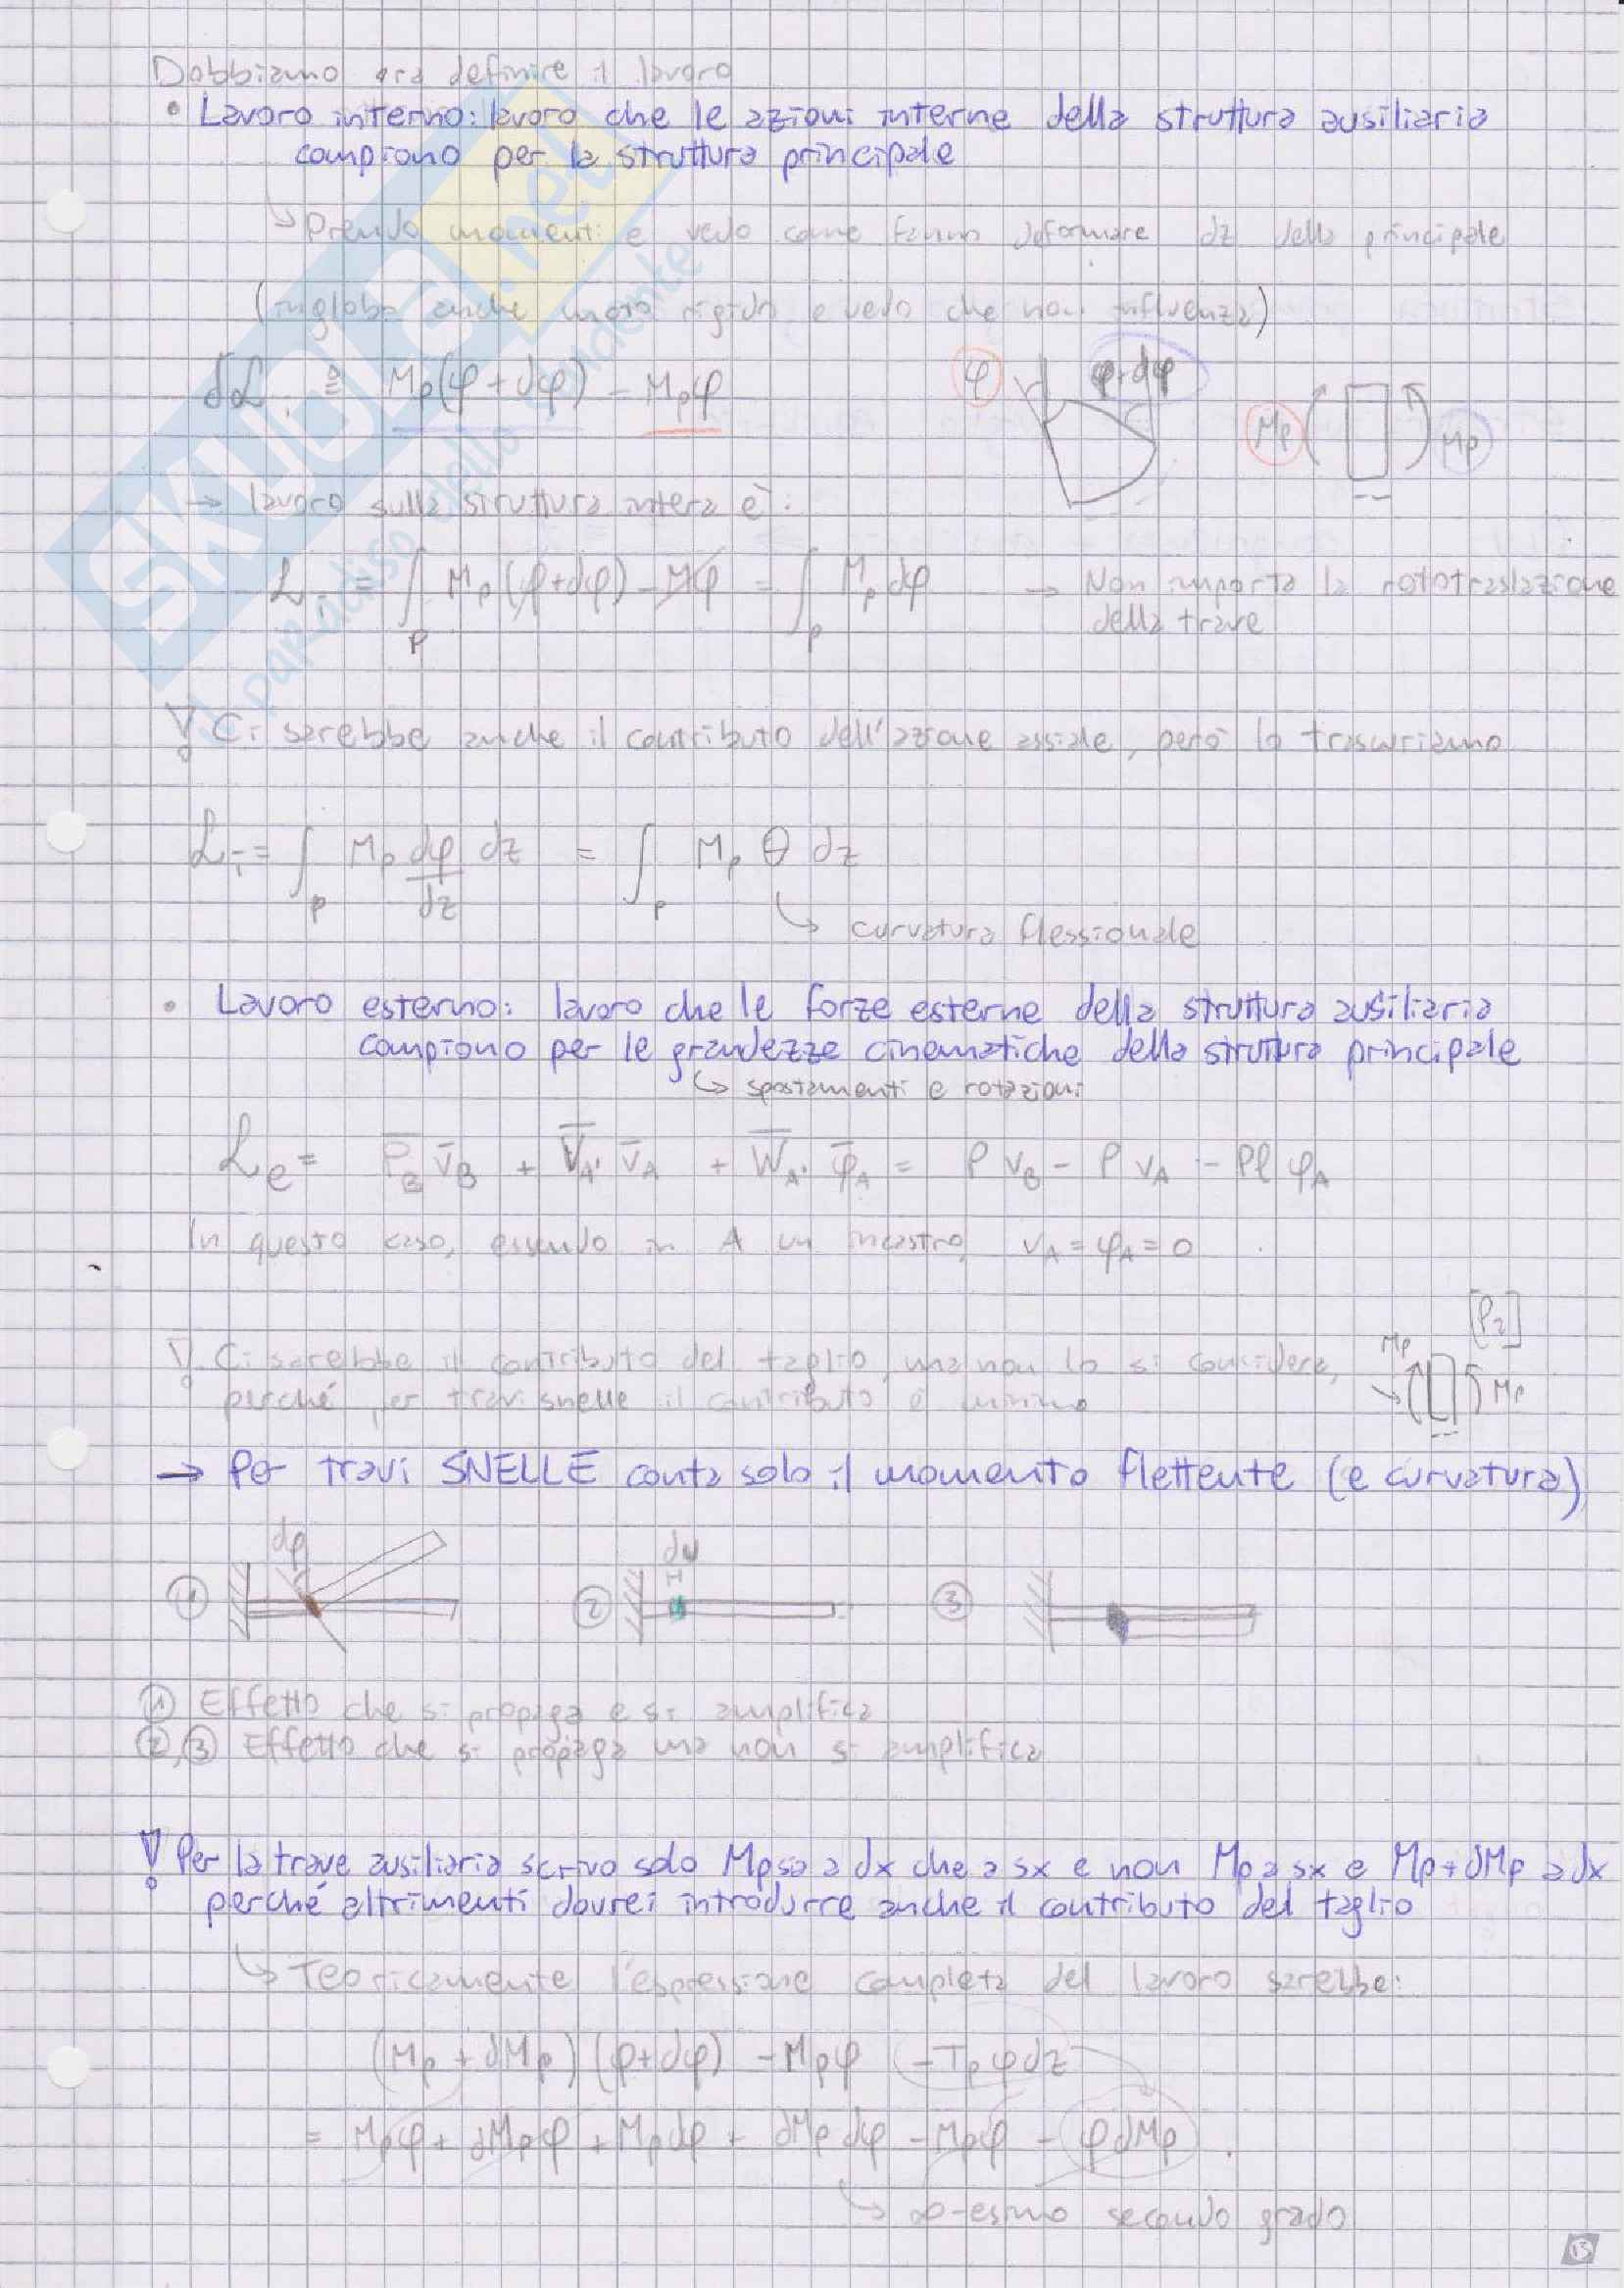 Dobbiamo ora definire il lavoro
• Lavoro interno: lavoro che le azioni interne della struttura ausiliaria
compiono per la struttura principale
↳ Prendo momenti e vedo come fanno deformare dz della principale
(inglobo anche moto rigido e vedo che non influenza)
dLi ≙ Mp(φ+dφ) - Mpφ
φ φ+dφ Mp Mp
→ lavoro sulla struttura intera è:
Li = ∫p Mp(φ+dφ) - Mφ = ∫p Mp dφ → Non importa la rototraslazione
della trave
Ci sarebbe anche il contributo dell'azione assiale, però lo trascuriamo
Li = ∫p Mp dφ/dz dz = ∫p Mp θ dz
↳ curvatura flessionale
• Lavoro esterno: lavoro che le forze esterne della struttura ausiliaria
compiono per le grandezze cinematiche della struttura principale
↳ spostamenti e rotazioni
Le = P̄B v̄B + V̄A · v̄A + W̄A · φ̄A = P vB - P vA - Pl φA
In questo caso, essendo in A un incastro, vA = φA = 0
[P2]
Ci sarebbe il contributo del taglio, ma non lo si considera,
perché per travi snelle il contributo è minimo
Mp Mp
→ Per travi SNELLE conta solo il momento flettente (e curvatura)
dφ
① ② ③
① Effetto che si propaga e si amplifica
②,③ Effetto che si propaga ma non si amplifica
Per la trave ausiliaria scrivo solo Mp sa a dx che a sx e non Mp a sx e Mp+dMp a dx
perché altrimenti dovrei introdurre anche il contributo del taglio
↳ Teoricamente l'espressione completa del lavoro sarebbe:
(Mp + dMp)(φ+dφ) - Mpφ - Tp φ dz
= Mpφ + dMpφ + Mpdφ + dMp dφ - Mpφ - φ dMp
↳ ∞-esimo secondo grado
13
SKUOLA.net
il paradiso dello studente